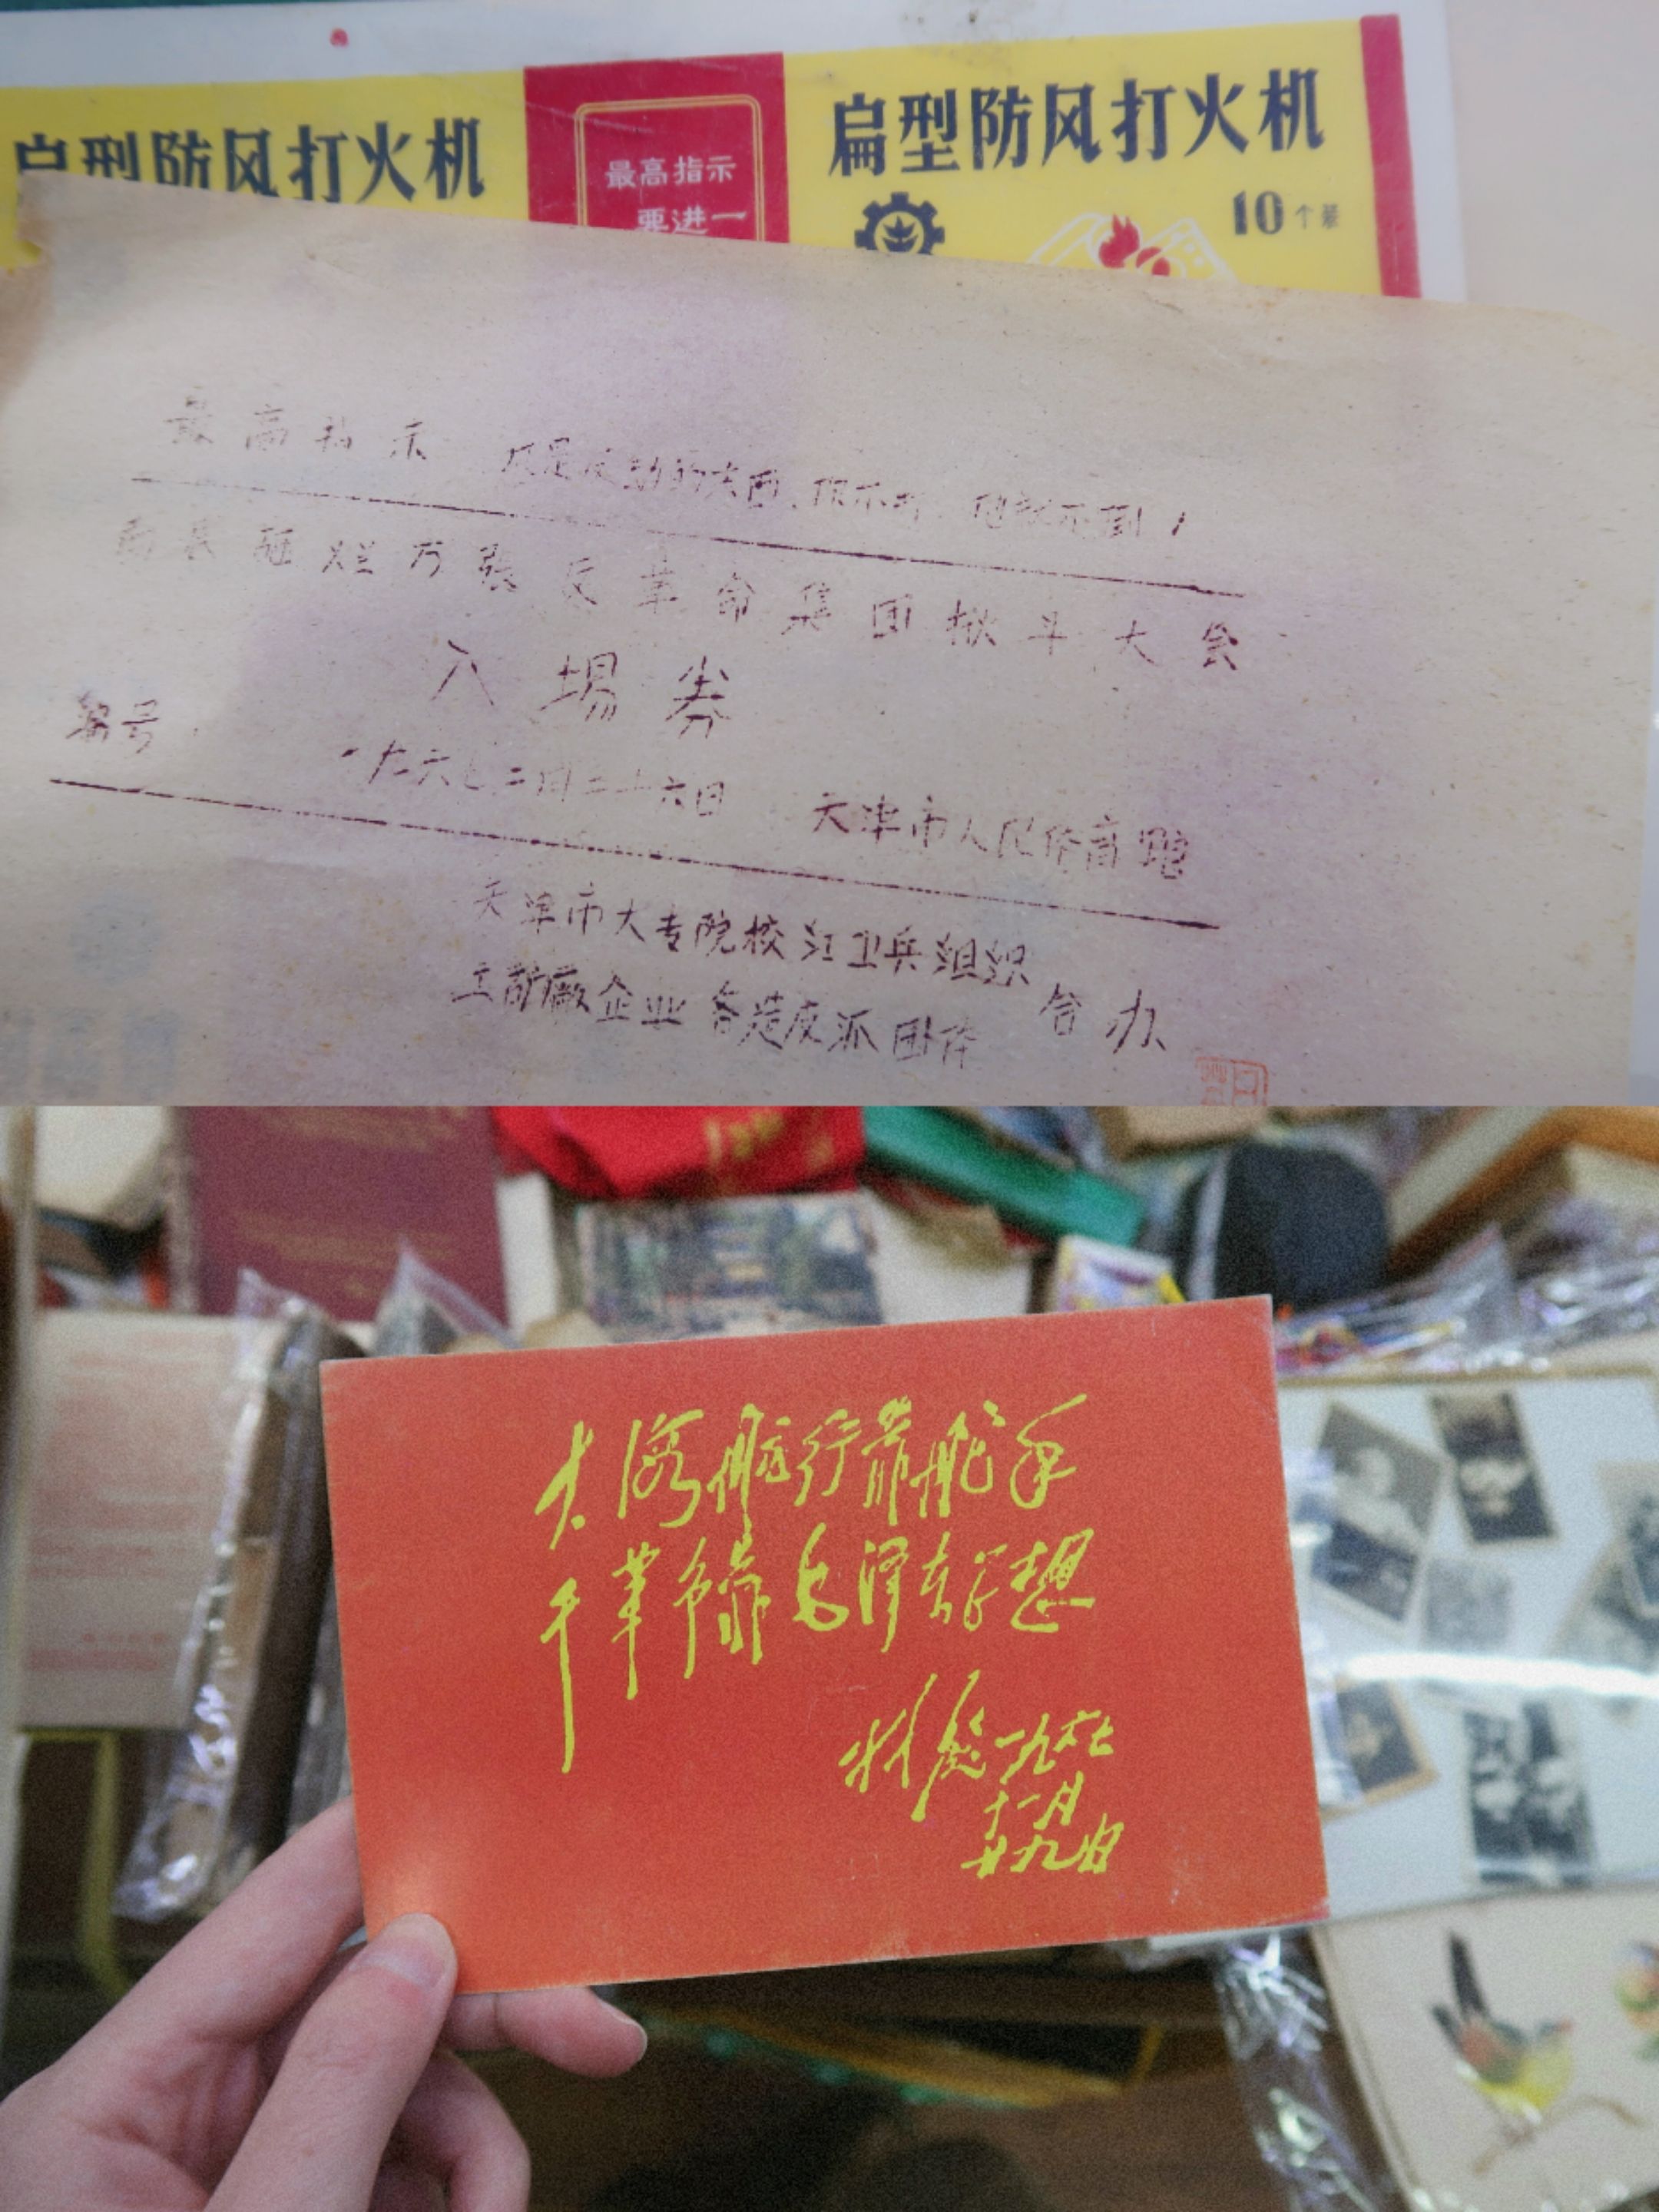 扁型防风打火机
最高指示
要进一
扁型防风打火机
10个装
最高指示 凡是反动的东西，你不打，他就不倒！
砸烂万张反革命集团揪斗大会
入场券
编号
一九六七二月二十六日 天津市人民体育馆
天津市大专院校红卫兵组织
工矿厰企业各造反派团体 合办
大海航行靠舵手
干革命靠毛泽东思想
林彪 一九六七
十一月
廿九日